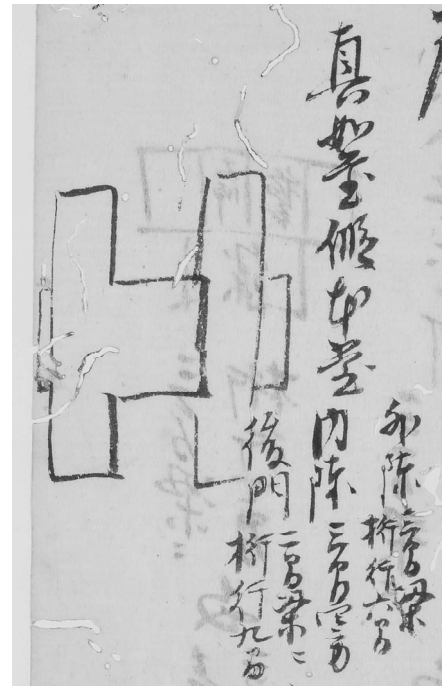 真如堂假本堂
外陳 三間梁
桁行六間
内陳 三間四方
後門 二間梁ニ
桁行九間